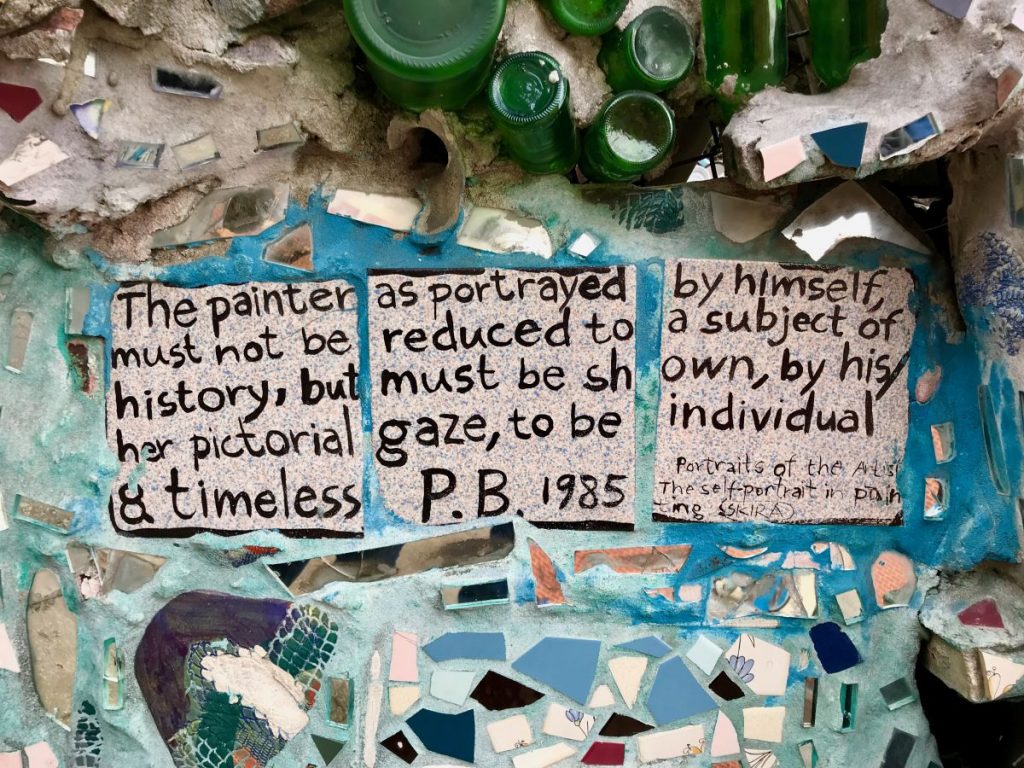 The painter as portrayed by himself,
must not be reduced to a subject of
history, but must be sh own, by his/
her pictorial gaze, to be individual
& timeless P.B. 1985
Portraits of the Artist
The self-portrait in pain
ting SSKIRA)